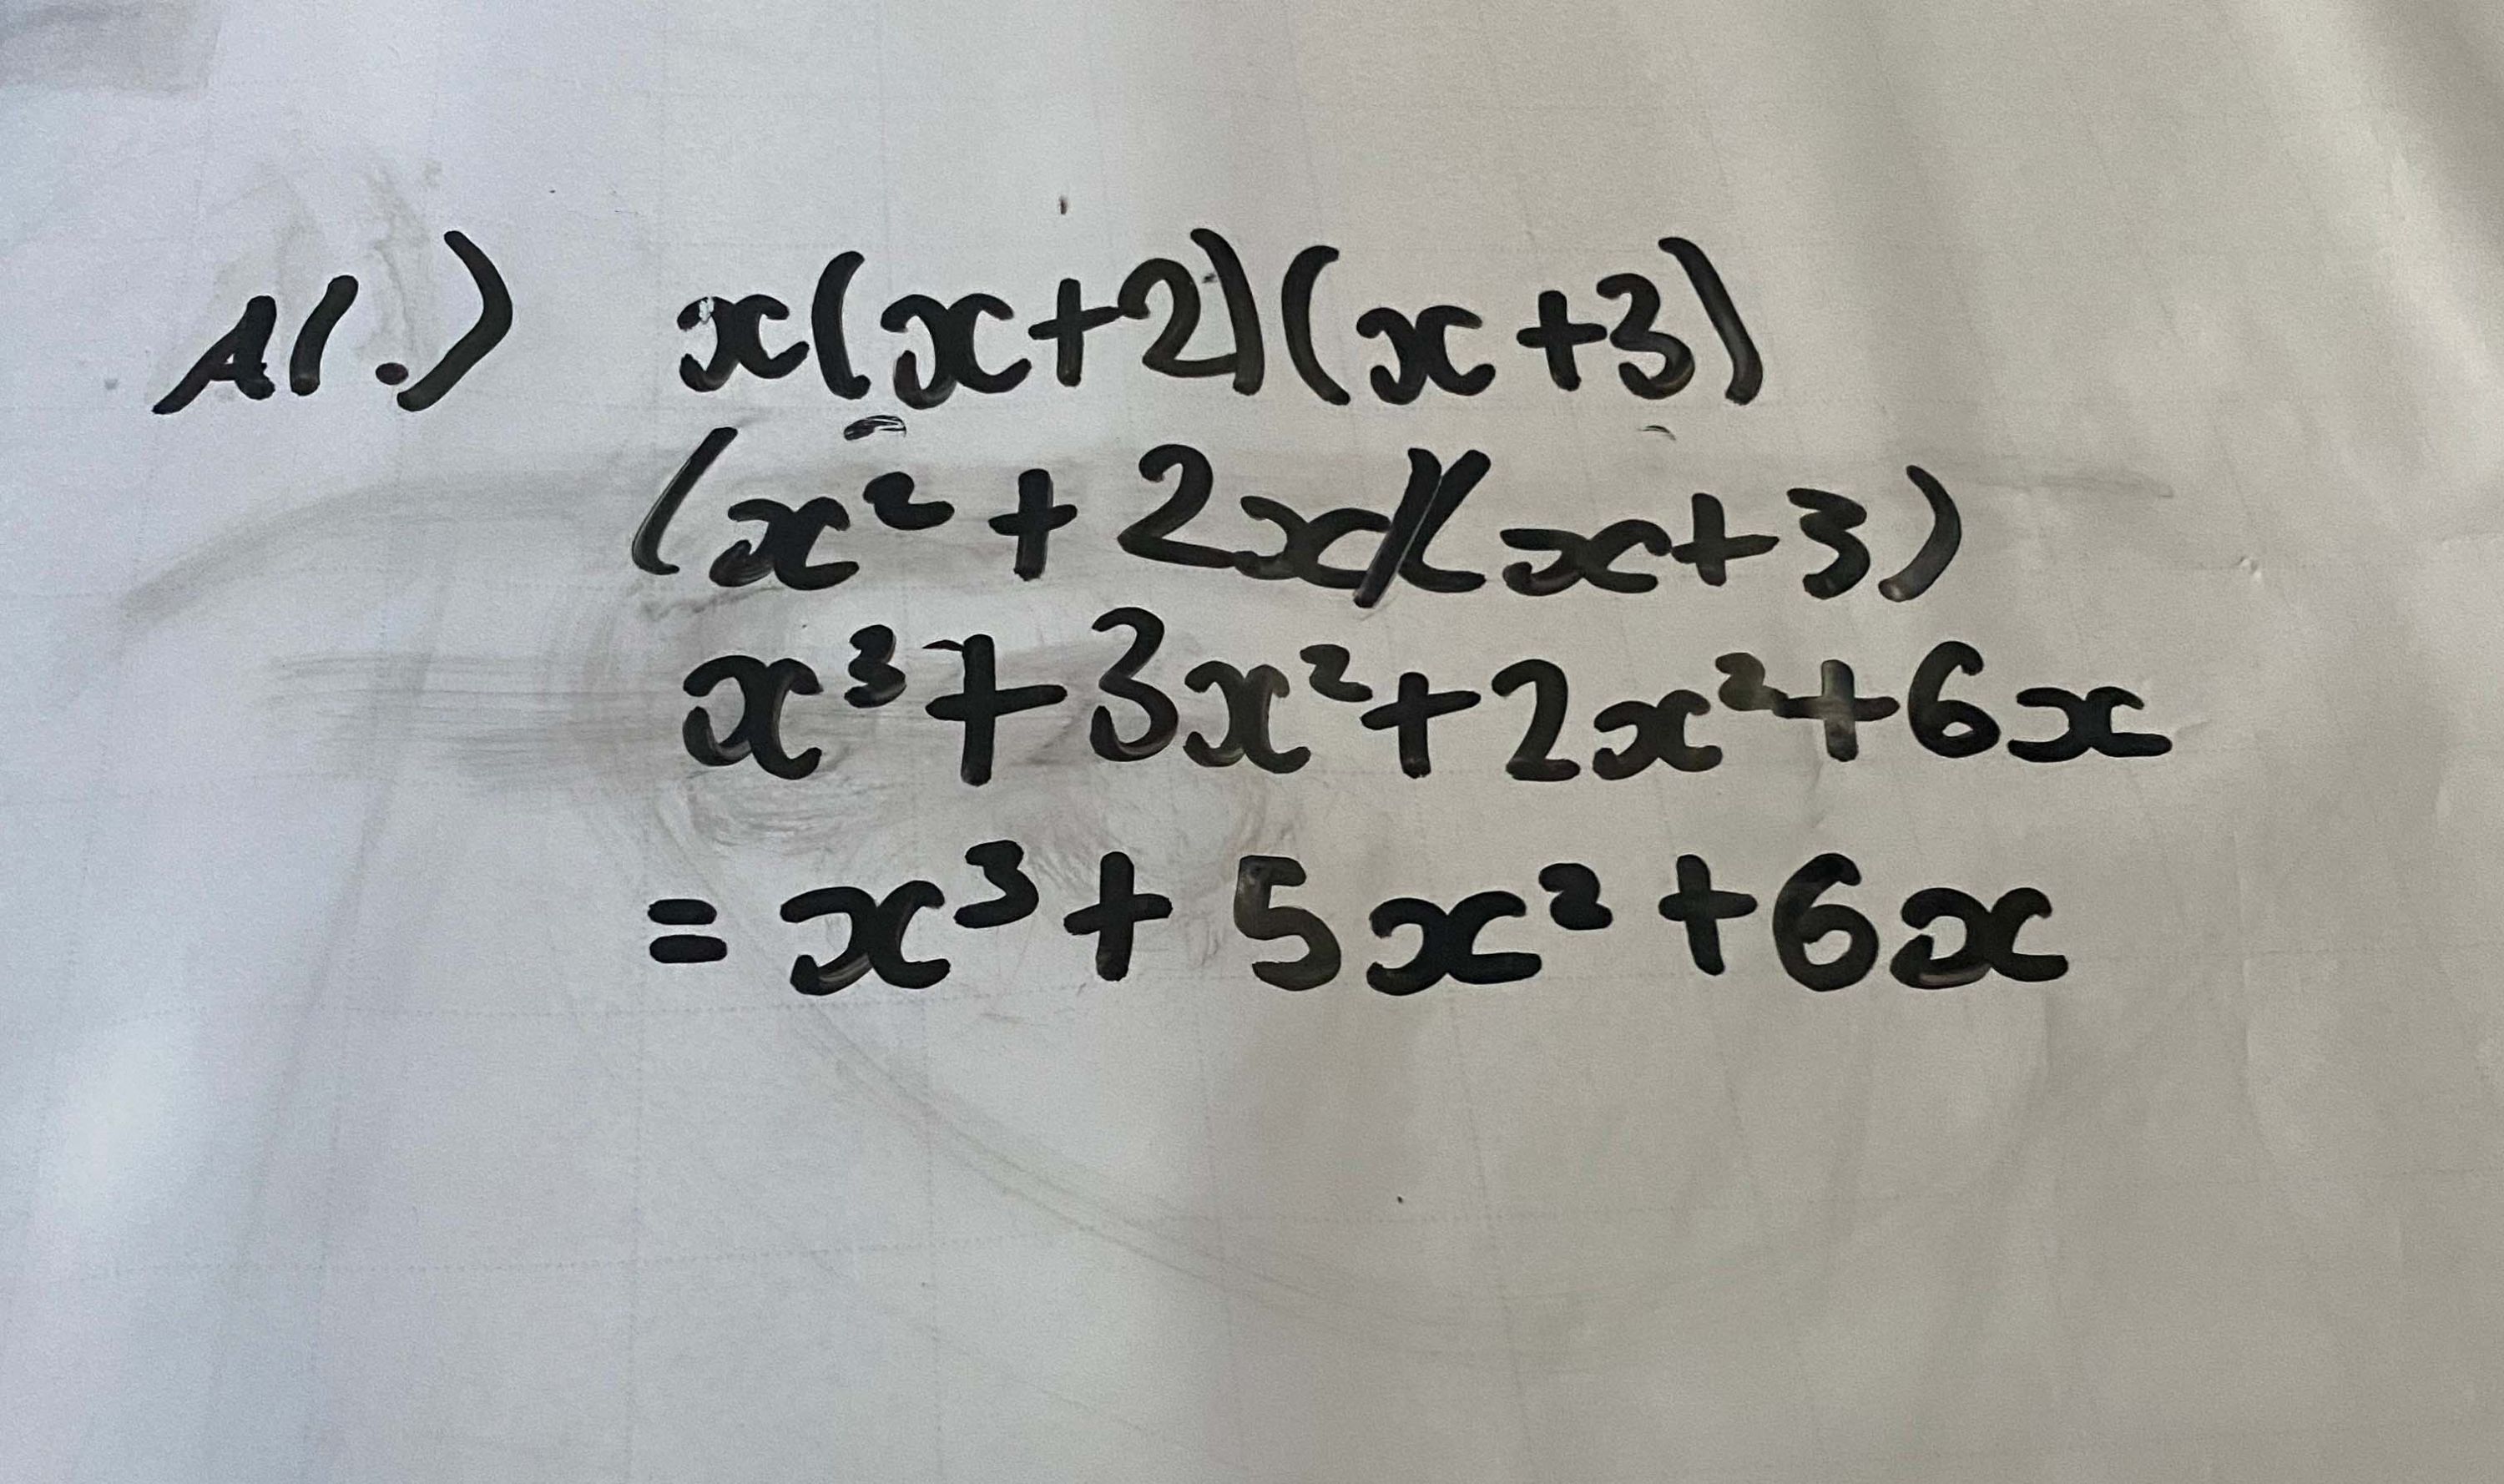 A1.) x(x+2)(x+3)
(x²+2x)(x+3)
x³+3x²+2x²+6x
=x³+5x²+6x